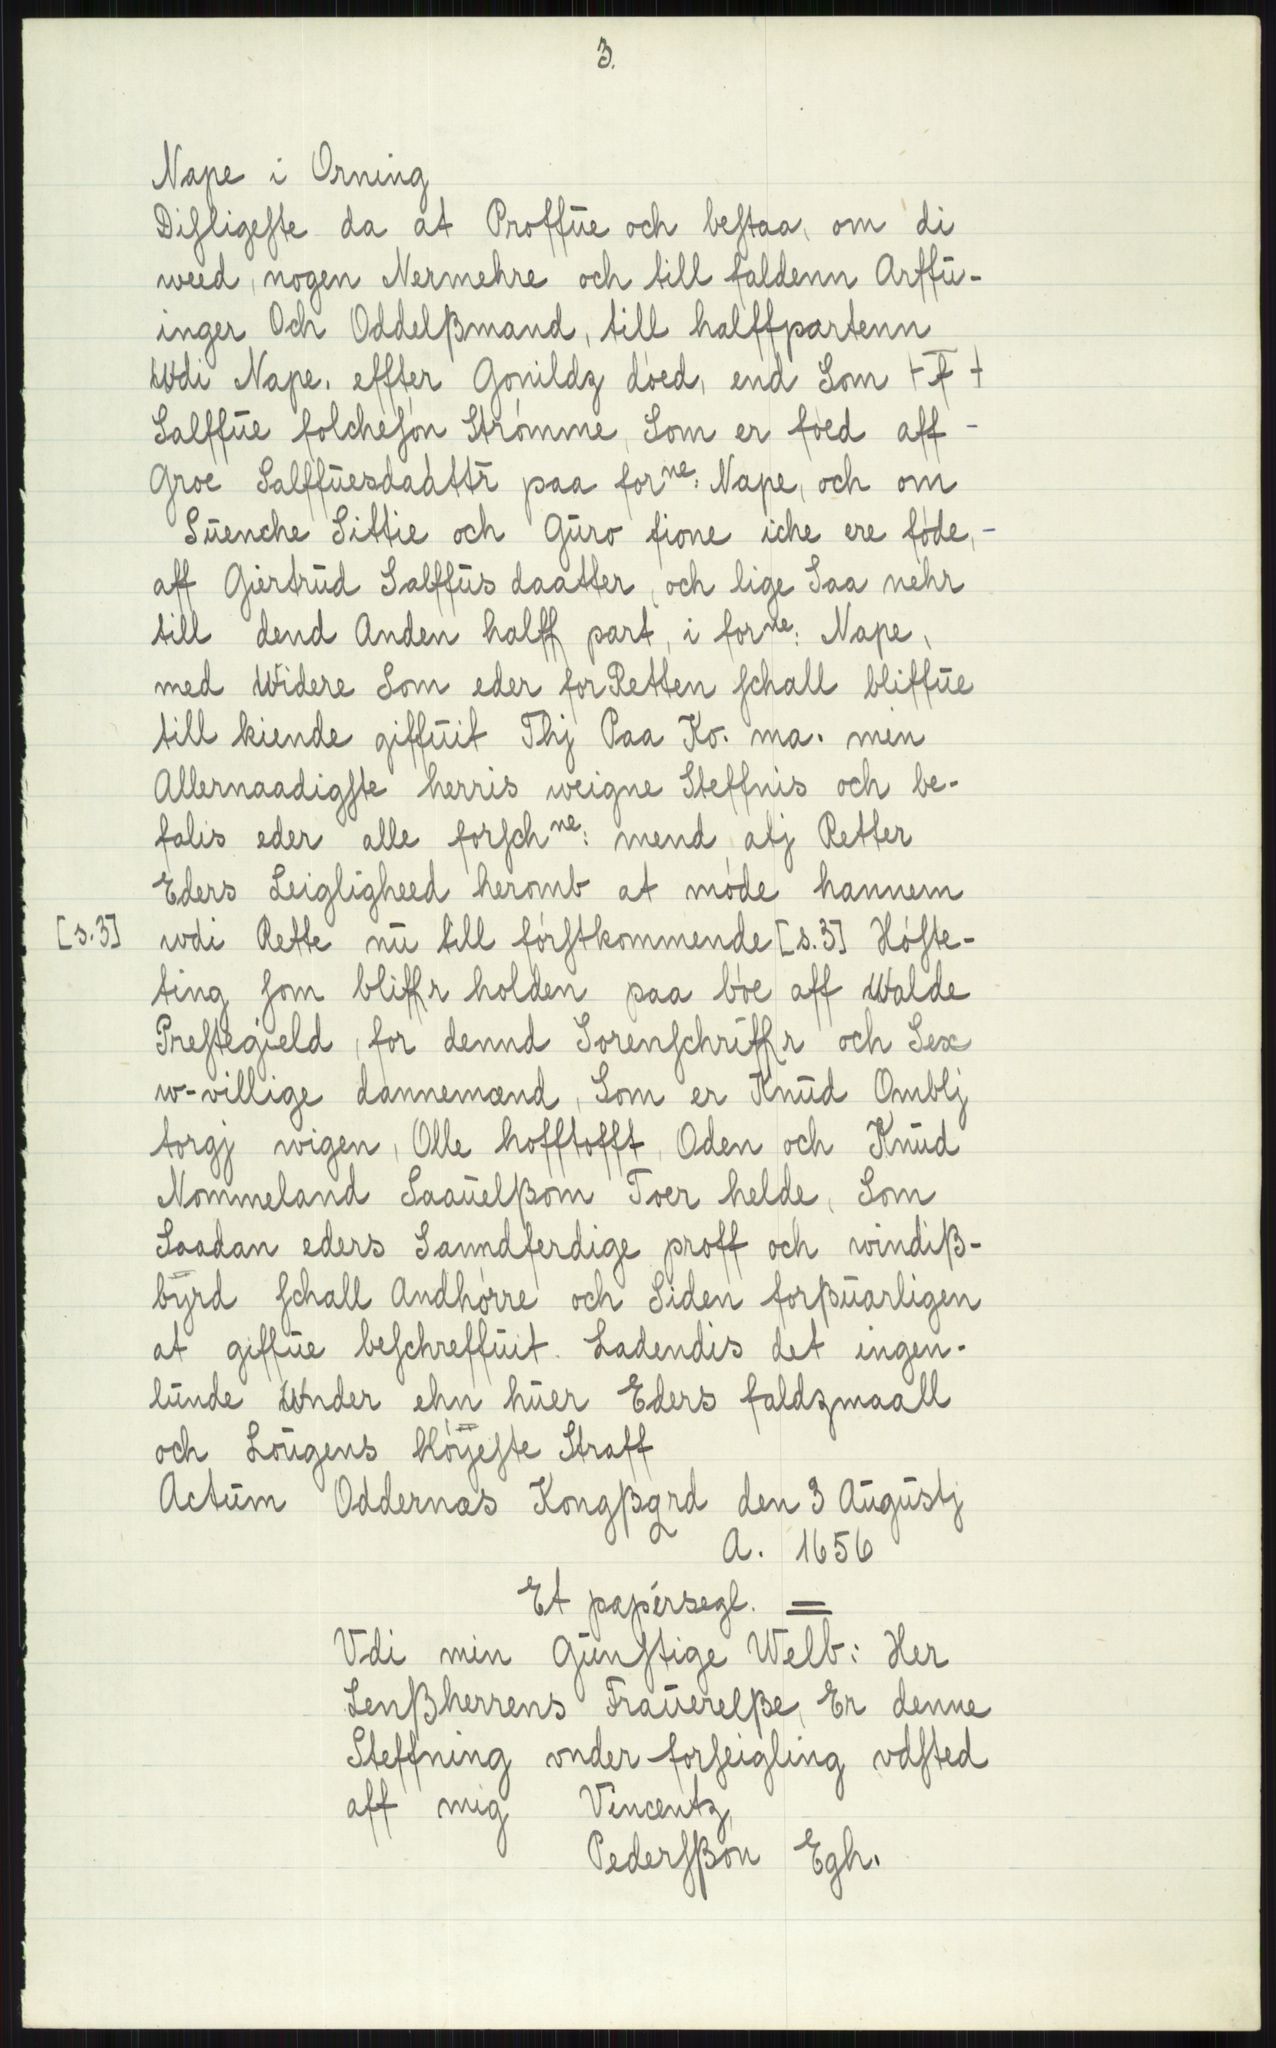 3.
Nape i Orning
Disligeste da at Proffüe och bestaa, om di
weed, nogen Nermehre och till faldenn Arffü-
inger Och Oddelßmand, till halffpartenn
Wdi Nape. effter Gonildz dóed, end Som
Salffüe folchesón Strómme, Som er fóed aff -
Groe Salffüesdaattr paa forne: Nape, och om
Süenche Sittie och Güro fione iche ere fóde, -
aff Giertrüd Salffüs daatter, och lige Saa nehr
till dend Anden halff part, i forne: Nape,
med Widere Som eder for Retten schall bliffüe
till kiende giffüit Thj Paa Ko. ma. min
Allernaadigste herris weigne Steffnis och be-
falis eder alle forschne: mend atj Retter
Eders Leigligheed heromb at móde hannem
[s.3] wdi Rette nü till fórstkommende [s.3] Hóste-
ting som bliffr holden paa bóe aff Walde
Prestegield, for dennd Sorenschriffr och Sex
w-villige dannemænd, Som er Knüd Omblj
torgj wigen, Olle hofftofft, Oden och Knüd
Nommeland Saaüelßom Toer helde, Som
Saadan eders Sanndferdige proff och windiß-
byrd schall Andhórre och Siden forßüarligen
at giffüe beschreffüit. Ladendis det ingen-
lünde Wnder ehn hüer Eders faldzmaall
och Loügens Hóÿeste Straff
Actüm Oddernæs Kongßgrd den 3 Aügüstj
A. 1656
Et papirsegl. =
Vdi min Günstige Welb: Her
Lenßherrens Fraüerelße, Er denne
Steffning vnder forseigling vdsted
aff mig Vincentz
Pedersßón Egh.